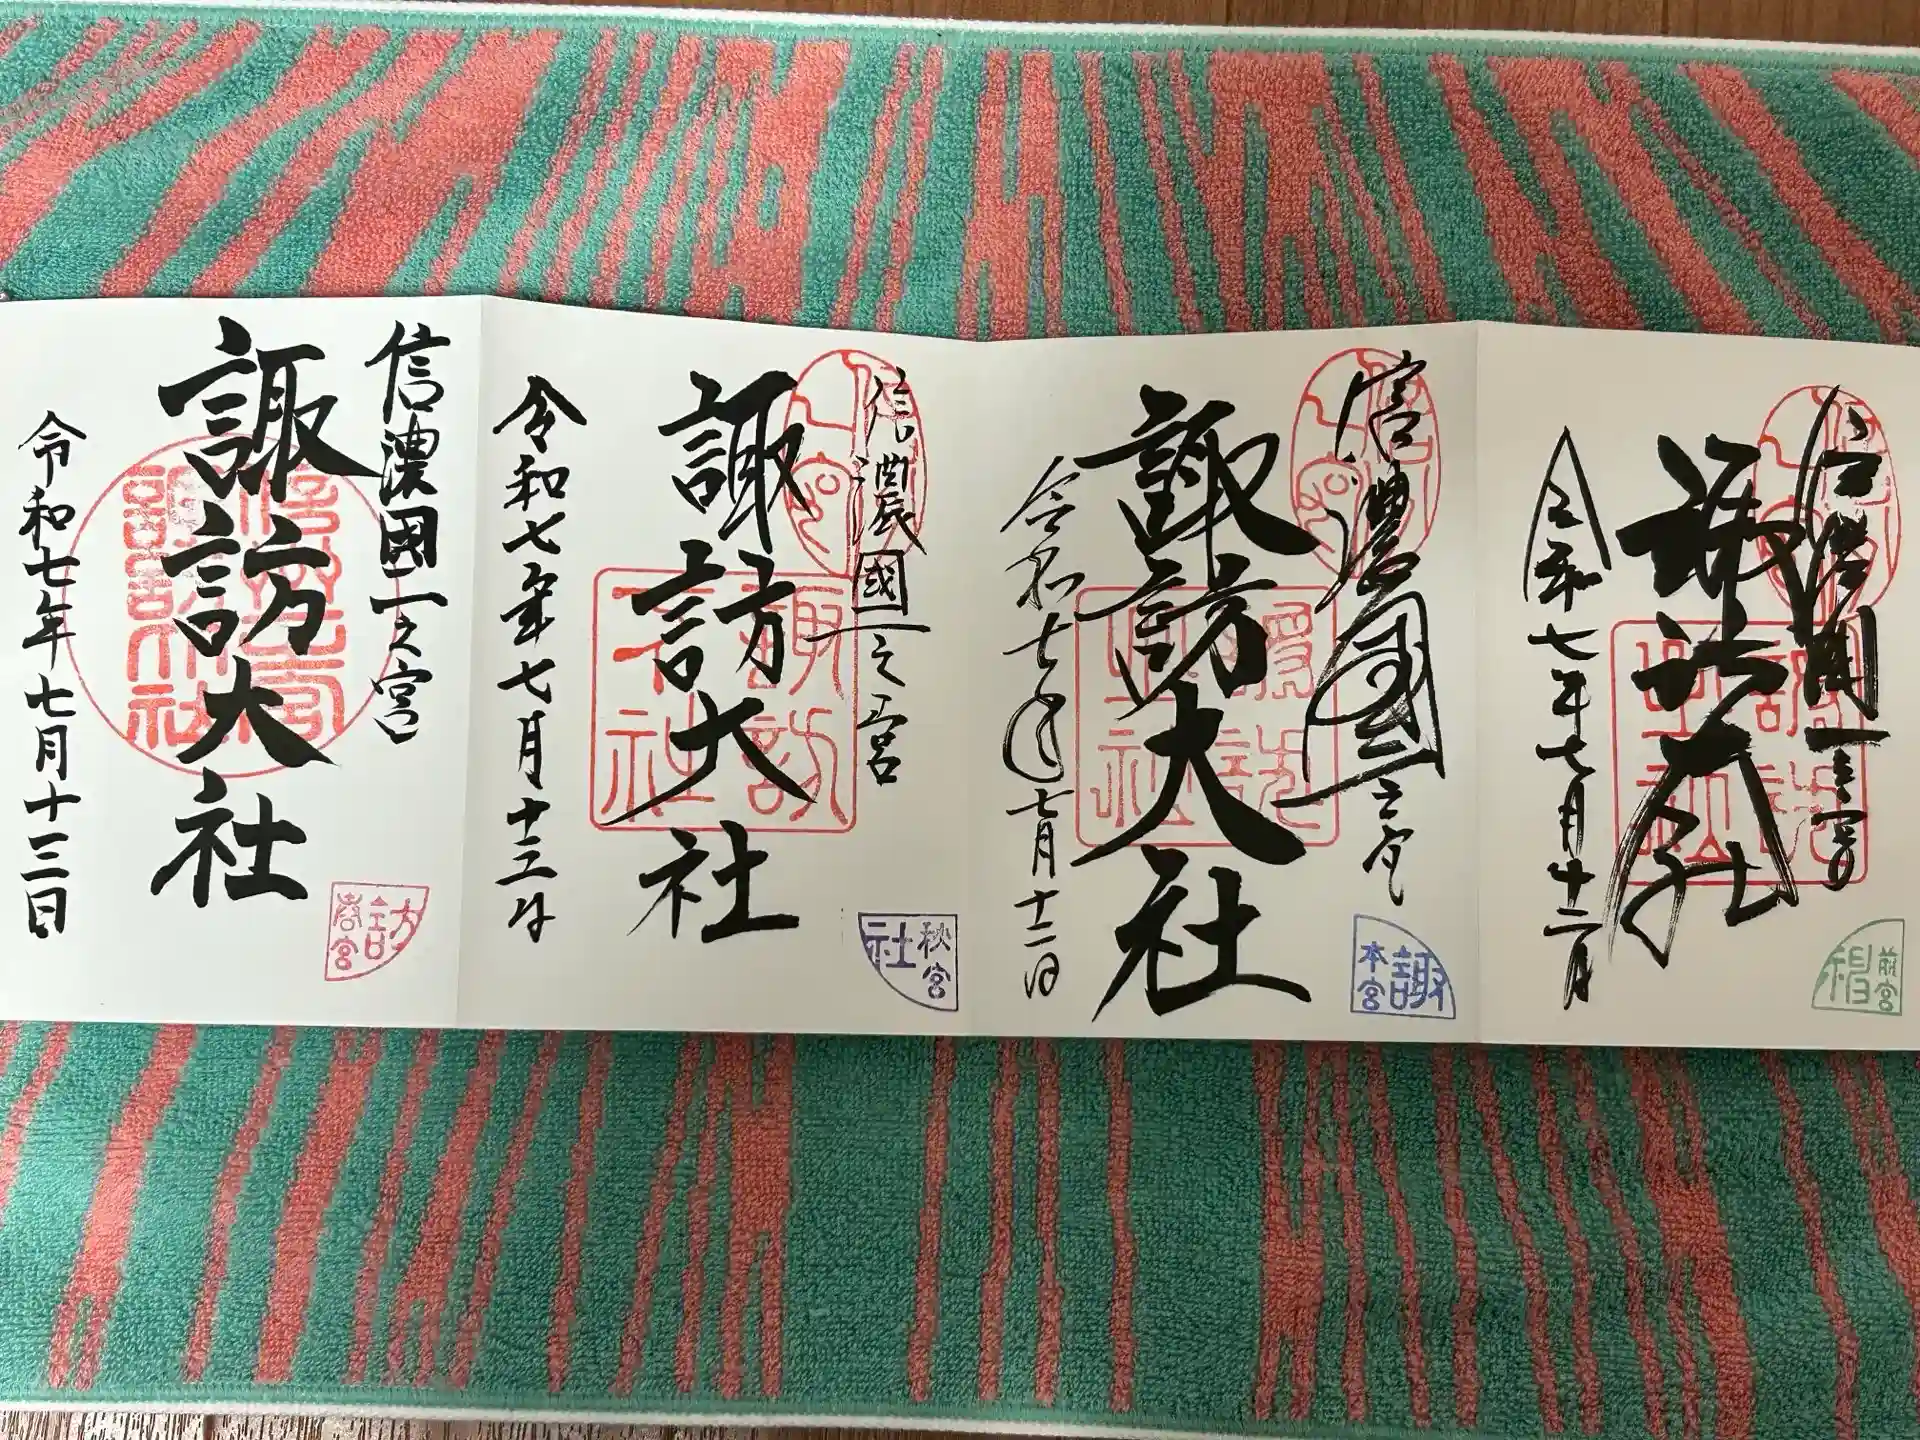 信濃國一之宮
諏訪大社
令和七年七月十二日
前宮
信濃國一之宮
諏訪大社
令和七年七月十二日
諏
本宮
信濃國一之宮
諏訪大社
令和七年七月十三日
秋宮
社
信濃國一之宮
諏訪大社
令和七年七月十三日
訪
春宮